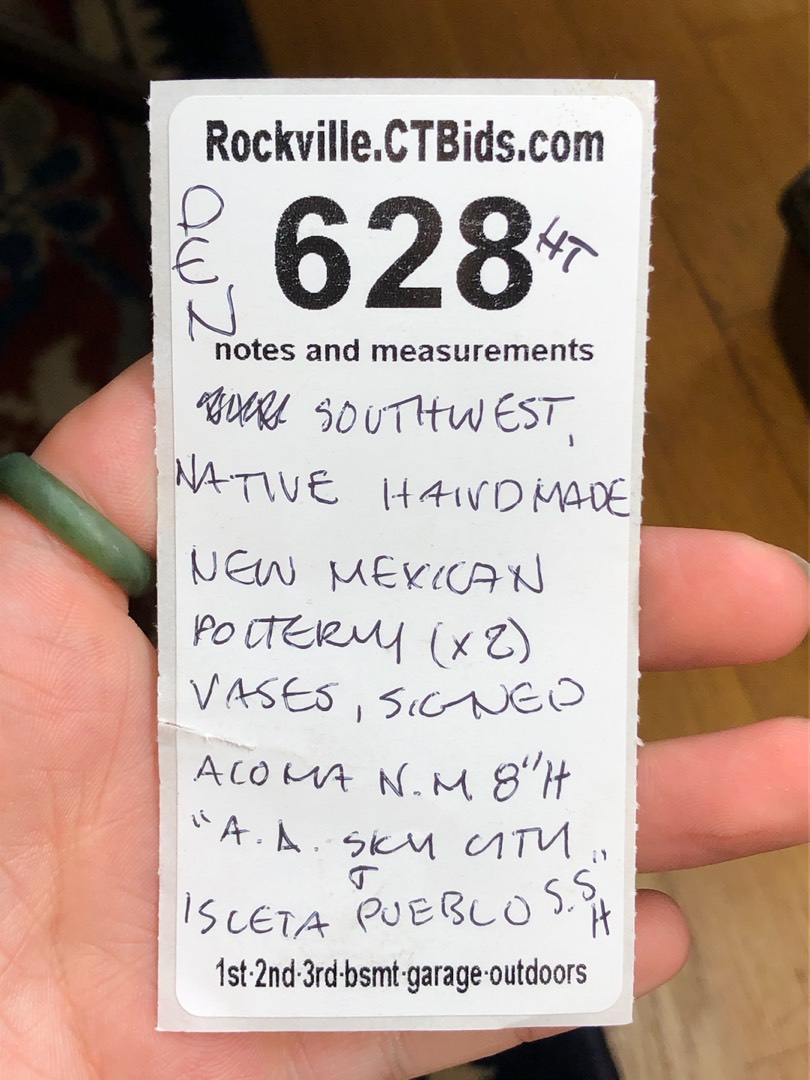 Rockville.CTBids.com
DEN
628 HT
notes and measurements
SOUTHWEST,
NATIVE HANDMADE
NEW MEXICAN
POTTERY (x2)
VASES, SIGNED
ACOMA N.M. 8"H
"A.A. SKY CITY"
ISLETA PUEBLO 5.5" H
1st·2nd·3rd·bsmt·garage·outdoors